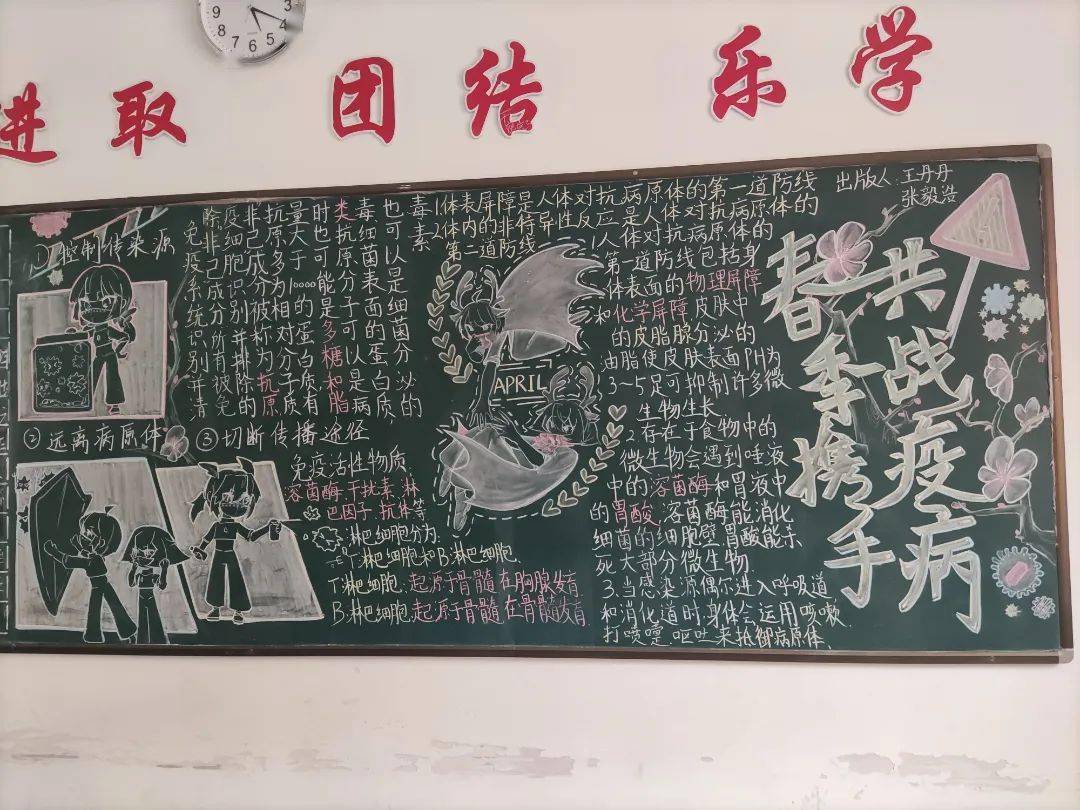 9 8 7 6 5 4 3
进取 团结 乐学
①控制传染源
②远离病原体
③切断传播途径
免疫系统识别并清
除非己成分所有被免
疫细胞识别并排除的
非己成分被称为抗原
抗原多为相对分子质
量大于10000的蛋白质有
时也可能是多糖和脂
类抗原分子可以是病
毒细菌表面的蛋白质
也可以是细菌分泌的
毒素
免疫活性物质:
溶菌酶、干扰素、淋
巴因子、抗体等
淋巴细胞分为:
T淋巴细胞和B淋巴细胞
T淋巴细胞:起源于骨髓在胸腺发育
B淋巴细胞:起源于骨髓在骨髓发育
APRIL
1.体表屏障是人体对抗病原体的第一道防线
2.体内的非特异性反应是人体对抗病原体的
第二道防线
1.人体对抗病原体的
第一道防线包括身
体表面的物理屏障
和化学屏障皮肤中
的皮脂腺分泌的
油脂使皮肤表面PH为
3~5足可抑制许多微
生物生长
2.存在于食物中的
微生物会遇到唾液
中的溶菌酶和胃液中
的胃酸,溶菌酶能消化
细菌的细胞壁胃酸能杀
死大部分微生物
3.当感染源偶尔进入呼吸道
和消化道时身体会运用咳嗽
打喷嚏呕吐来抵御病原体、
出版人:王丹丹
张毅浩
春季携手
共战疫病